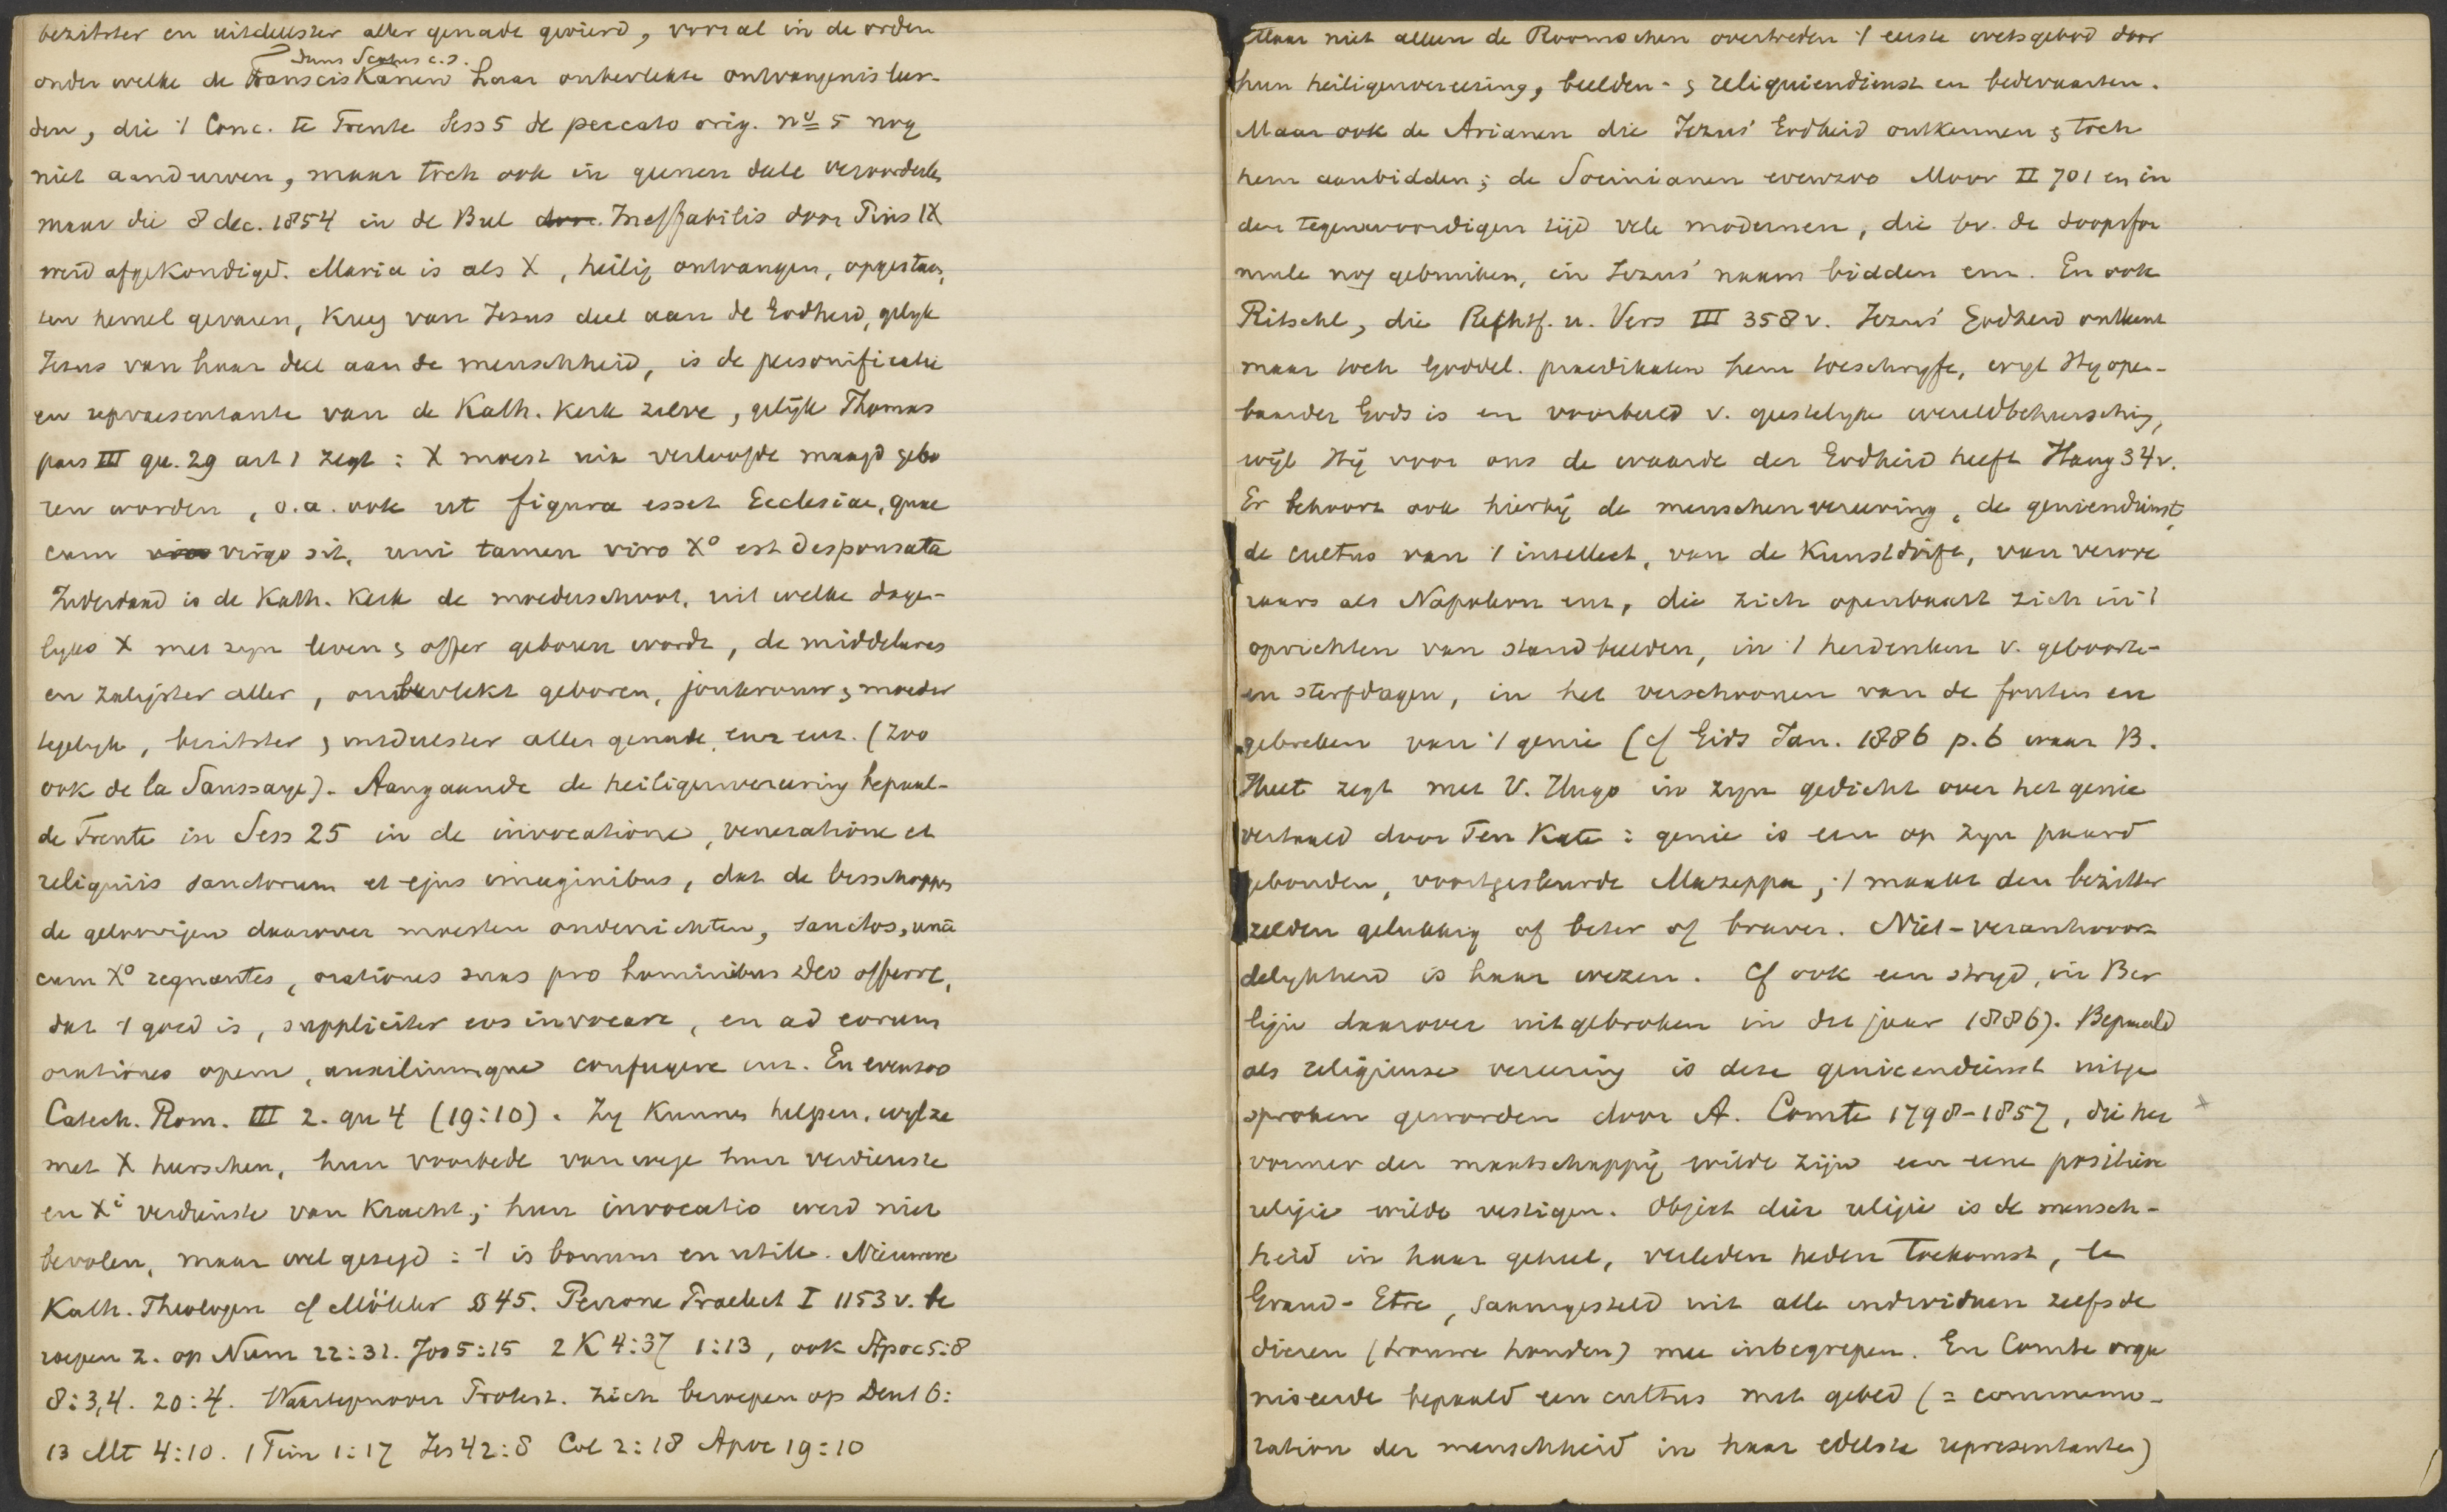 bezitster en uitdeelster aller genade gevierd, vooral in de orden
Duns Scotus c.s.
onder welke de Franciskanen haar onbevlekte ontvangenis leer-
den, die 't Conc. te Trente Sess 5 de peccato orig. nº 5 nog
niet aandurven, maar toch ook in geenen deele veroordeelde,
maar die 8 dec. 1854 in de Bul door. Ineffabilis door Pius IX
werd afgekondigd. Maria is als X, heilig ontvangen, opgestaan,
ten hemel gevaren, kreeg van Jezus deel aan de Godheid, gelyk
Jezus van haar deel aan de menschheid, is de personificatie
en repraesentante van de Kath. Kerk zelve, gelijk Thomas
pars III qu. 29 art 1 zegt : X moest uit verloofde maagd gebo
ren worden, o.a. ook ut figura esset Ecclesiae, quae
cum viro virgo sit, uni tamen viro Xo est desponsata
Inderdaad is de Kath. Kerk de moederschoot, uit welke dage-
lyks X met zyn leven & offer geboren wordt, de middelares
en zaligster aller, onbevlekt geboren, jonkvrouw & moeder
tegelyk, bezitster & uitdeelster aller genade, enz enz. (Zoo
ook de la Saussaye). Aangaande de heiligenvereering bepaal-
de Trente in Sess 25 in de invocatione, veneratione et
reliquiis sanctorum et ejus imaginibus, dat de bisschoppen
de geloovigen daarover moesten onderrichten, sanctos, una
cum Xo regnantes, orationes suas pro hominibus Deo offerre,
dat 't goed is, suppliciter eos invocare, en ad eorum
orationes opem, auxiliumque confugere enz. En evenzoo
Catech. Rom. III 2. qu 4 (19:10). Zy kunnen helpen, wyl ze
met X heerschen, hun voorbede van wege hun verdienste
en Xi verdienste van kracht; hun invocatio werd niet
bevolen, maar wel gezegd : 't is bonum en utile. Nieuwere
Kath. Theologen cf Möhler § 45. Perrone Praelect I 1153 v. be
roepen z. op Num 22:31. Joz 5:15 2 K 4:37 1:13, ook Apoc 5:8
8:3,4. 20:4. Waartegenover Protest. zich beroepen op Deut 6:
13 Mt 4:10. 1 Tim 1:17 Jes 42:8 Col 2:18 Apoc 19:10
Maar niet alleen de Roomschen overtreden 't eerste wetsgebod door
hun heiligenvereering, beelden- & reliquiendienst en bedevaarten.
Maar ook de Arianen die Jezus' Godheid ontkennen & toch
hem aanbidden; de Socinianen evenzoo Moor II 701 en in
den tegenwoordigen tijd vele modernen, die bv. de doopsfor
mule nog gebruiken, in Jezus' naam bidden enz. En ook
Ritschl, die Rechtf. u. Vers III 358 v. Jezus' Godheid ontkent
maar toch Goddel. praedikaten hem toeschryft, wyl Hy open-
baarder Gods is en voorbeeld v. geestelyke wereldbeheersching,
wijl Hij voor ons de waarde der Godheid heeft Haug 34 v.
Er behoort ook hierbij de menschenvereering, de geniendienst,
de cultus van 't intellect, van de kunstdrift, van verove
raars als Napoleon enz, die zich openbaart zich in 't
oprichten van standbeelden, in 't herdenken v. geboorte-
en sterfdagen, in het verschoonen van de fouten en
gebreken van 't genie (cf Gids Jan. 1886 p. 6 waar B.
Huet zegt met V. Hugo in zyn gedicht over het genie
vertaald door Ten Kate : genie is een op zyn paard
gebonden, voortgesleurde Mazeppa; 't maakt den bezitter
zelden gelukkig of beter of braver. Niet-verantwoor-
delykheid is haar wezen. Cf ook een stryd, in Ber
lijn daarover uitgebroken in dit jaar 1886). Bepaald
als religieuse vereering is deze genieendienst uitge
sproken geworden door A. Comte 1798-1857, die her
vormer der maatschappij wilde zijn en eene positieve
religie wilde vestigen. Object dier religie is de mensch-
heid in haar geheel, verleden heden toekomst, le
Grand-Etre, saamgesteld uit alle individuen zelfs de
dieren (trouwe honden) mee inbegrepen. En Comte orga
niseerde bepaald een cultus met gebed (= commemo-
ration der menschheid in haar edelste representanten)